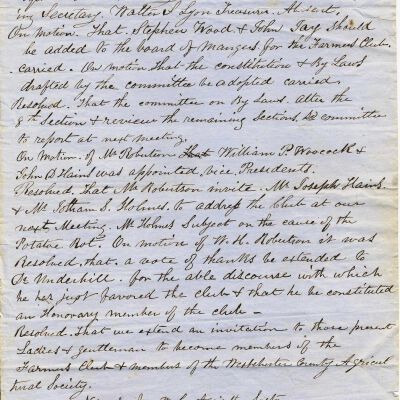 ing Secretary Walter S. Lyon Treasurer.
On Motion. That. Stephen Wood & John Jay Should
be added to the board of Manges for the Farmers Club.
carried. On motion that the constitution & By Laws
drafted by the committee be adopted carried
Resolved. That the committee on By Laws. alter the
8th Section & review the remaining Sections & committee
to report at next meeting.
On Motion. of Mr Robertson That William P. Woocock &
John B Hains was appointed vice. Presidents.
Resolved. That Mr Robertson invite. Mr Joseph Hains
& Mr Jotham S. Holmes. to address the Club at our
next Meeting. Mr Holmes Subject on the cause of the
Potatoe Rot. On motion of W. H. Robertson it was
Resolved, that. a vote of thanks be extended to
Dr Underhill. for the able discourse with which
he has just favored the club & that he be constituted
an Honorary member of the club –
Resolved. That we extend an invitation to those present
Ladies & gentleman to become members if the
Farmers Club & members of the Westchester County Agricul
tural Society.